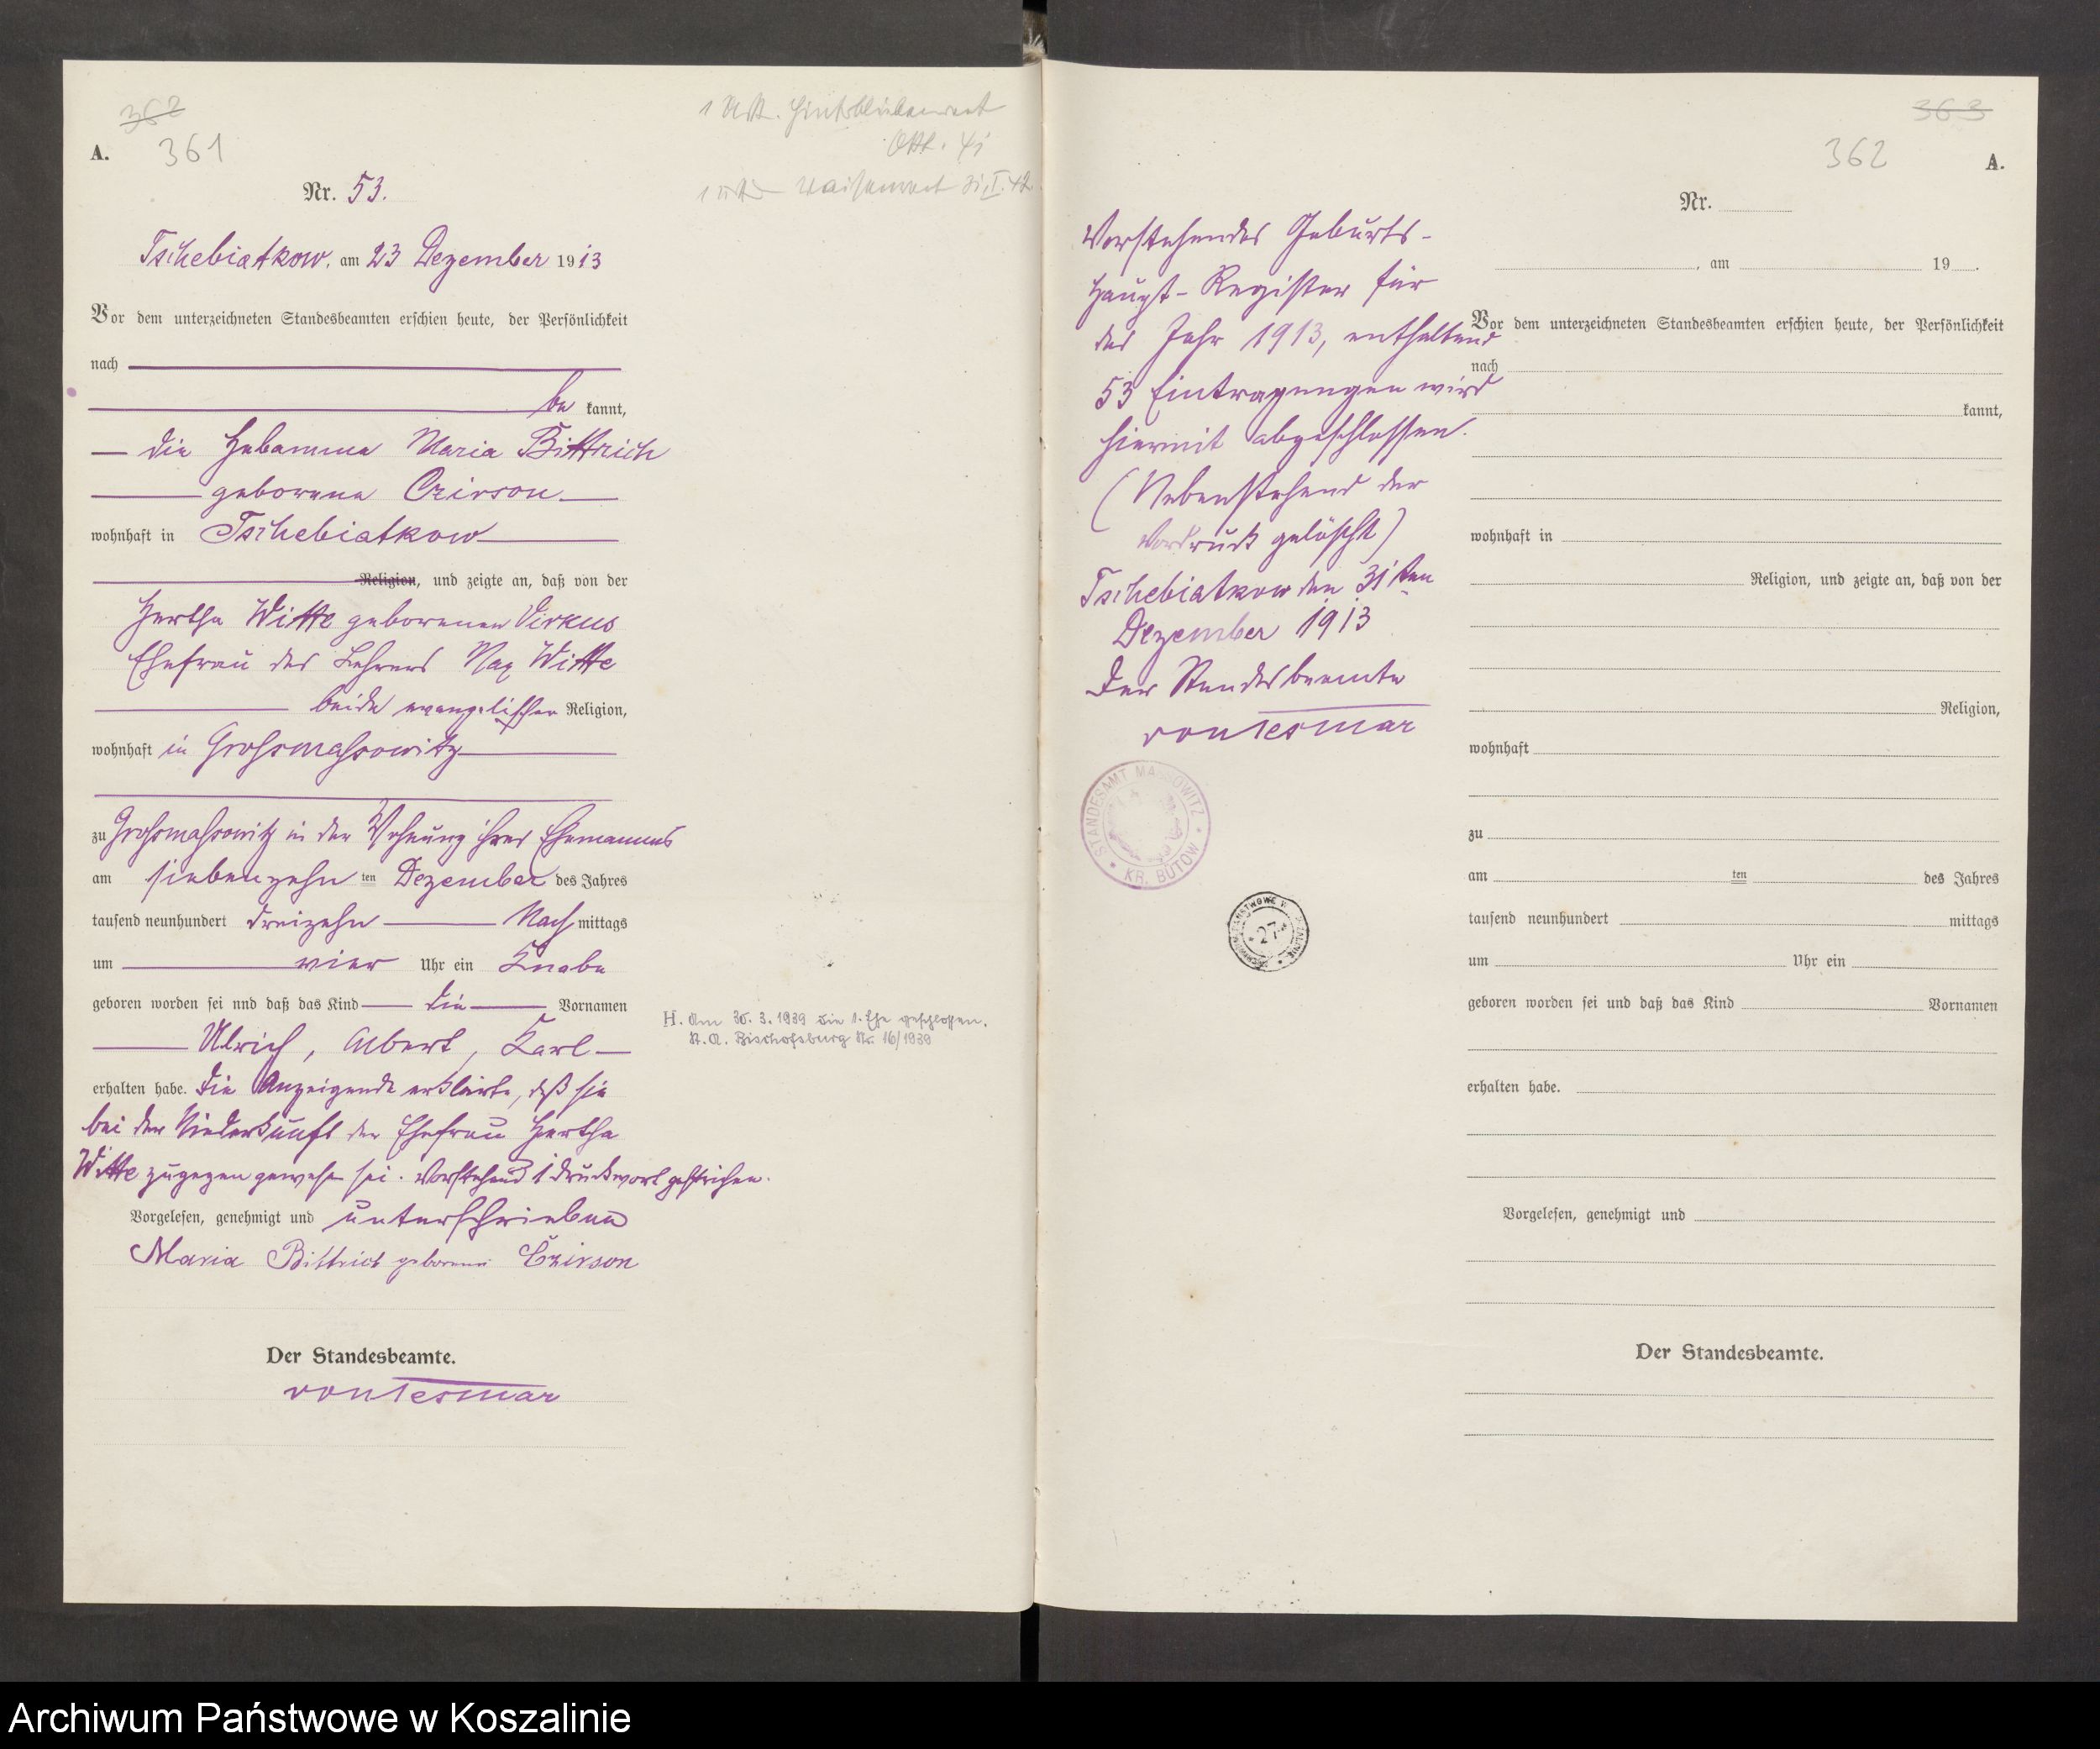 362
A. 361
Nr. 53.
Tschebiatkow, am 23 Dezember 1913
Vor dem unterzeichneten Standesbeamten erschien heute, der Persönlichkeit
nach
be kannt,
die Hebamme Maria Bittrich
geborene Czirson
wohnhaft in Tschebiatkow
Religion, und zeigte an, daß von der
Hertha Witte geborenen Virkus
Ehefrau des Lehrers Max Witte
beide evangelischer Religion,
wohnhaft in Grossmassowitz
zu Grossmassowitz in der Wohnung ihres Ehemannes
am siebenzehn ten Dezember des Jahres
tausend neunhundert dreizehn Nach mittags
um vier Uhr ein Knabe
geboren worden sei nnd daß das Kind die Vornamen
Ulrich, Albert, Karl
erhalten habe. Die Anzeigende erklärte, daß sie
bei der Niederkunft der Ehefrau Hertha
Witte zugegen gewesen sei. Vorstehend 1 Druckwort gestrichen.
Vorgelesen, genehmigt und unterschrieben
Maria Bittrich geborene Czirson
Der Standesbeamte.
von Tesmar
1
41
1 31.I.42
H. Am 30. 3. 1939 die 1. Ehe geschlossen.
St. A. Bischofsburg Nr. 16/1939
Vorstehendes Geburts-
Haupt-Register für
das Jahr 1913, enthaltend
53 Eintragungen wird
hiermit abgeschlossen.
(Nebenstehend der
Vordruck gelöscht)
Tschebiatkow den 31ten
Dezember 1913
Der Standesbeamte
von Tesmar
STANDESAMT MASSOWITZ
KR. BÜTOW
27
363
362 A.
Nr.
, am 19 .
Vor dem unterzeichneten Standesbeamten erschien heute, der Persönlichkeit
nach
kannt,
wohnhaft in
Religion, und zeigte an, daß von der
Religion,
wohnhaft
zu
am ten des Jahres
tausend neunhundert mittags
um Uhr ein
geboren worden sei und daß das Kind Vornamen
erhalten habe.
Vorgelesen, genehmigt und
Der Standesbeamte.
Archiwum Państwowe w Koszalinie